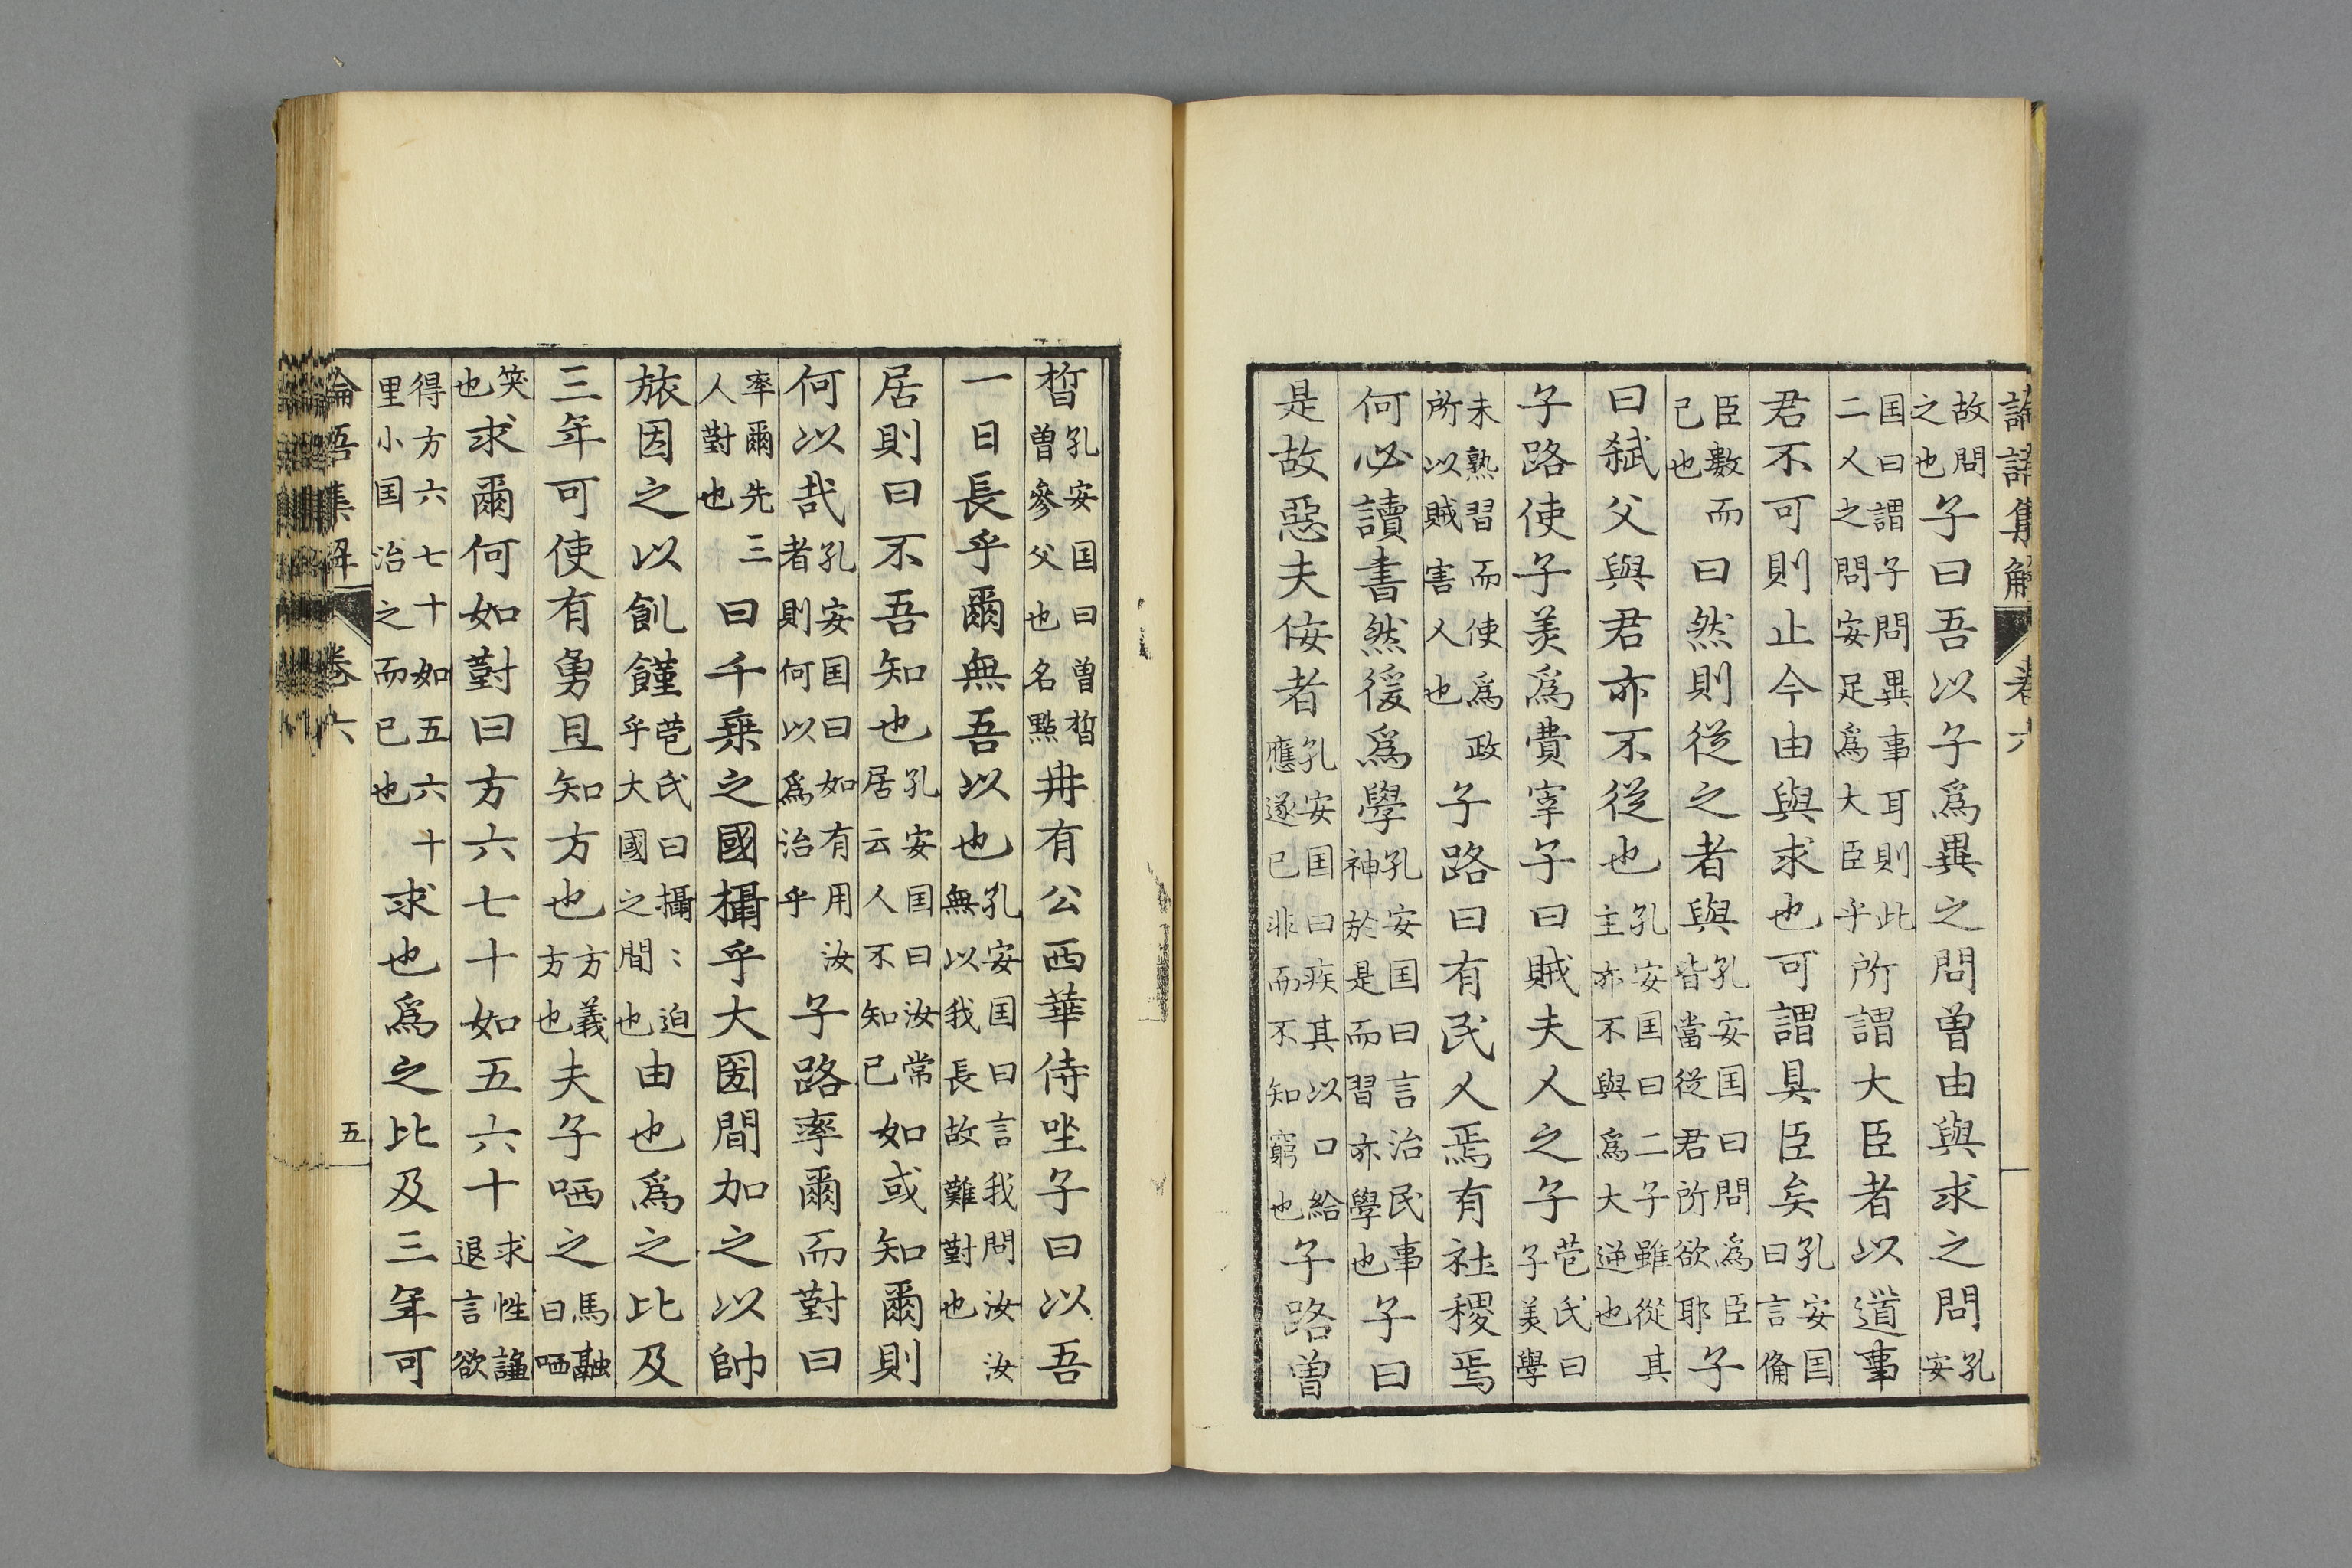 論語集解 卷六
故問之也子曰吾以子爲異之問曽由與求之問孔安
囯曰謂子問異事耳則此二人之問安足爲大臣乎所謂大臣者以道事
君不可則止今由與求也可謂具臣矣孔安囯曰言俻
臣數而已也曰然則從之者與孔安囯曰問爲臣皆當從君所欲耶子
曰弑父與君亦不從也孔安囯曰二子雖從其主亦不與爲大逆也
子路使子羙爲費宰子曰賊夫人之子苞氏曰子羙學
未熟習而使爲政所以賊害人也子路曰有民人焉有社稷焉
何必讀書然後爲學孔安囯曰言治民事神於是而習亦學也子曰
是故惡夫佞者孔安囯曰疾其以口給應遂已非而不知窮也子路曽
晳孔安囯曰曽晳曽參父也名點冉有公西華侍坐子曰以吾
一日長乎爾無吾以也孔安囯曰言我問汝汝無以我長故難對也
居則曰不吾知也孔安囯曰汝常居云人不知已如或知爾則
何以哉孔安囯曰如有用汝者則何以爲治乎子路率爾而對曰
率爾先三人對也曰千乗之國攝乎大囯間加之以帥
旅因之以飢饉苞氏曰攝〻迫乎大國之間也由也爲之比及
三年可使有勇且知方也方義方也夫子哂之馬融曰哂
笑也求爾何如對曰方六七十如五六十求性謙退言欲
得方六七十如五六十里小囯治之而已也求也爲之比及三年可
論語集解 卷六 五